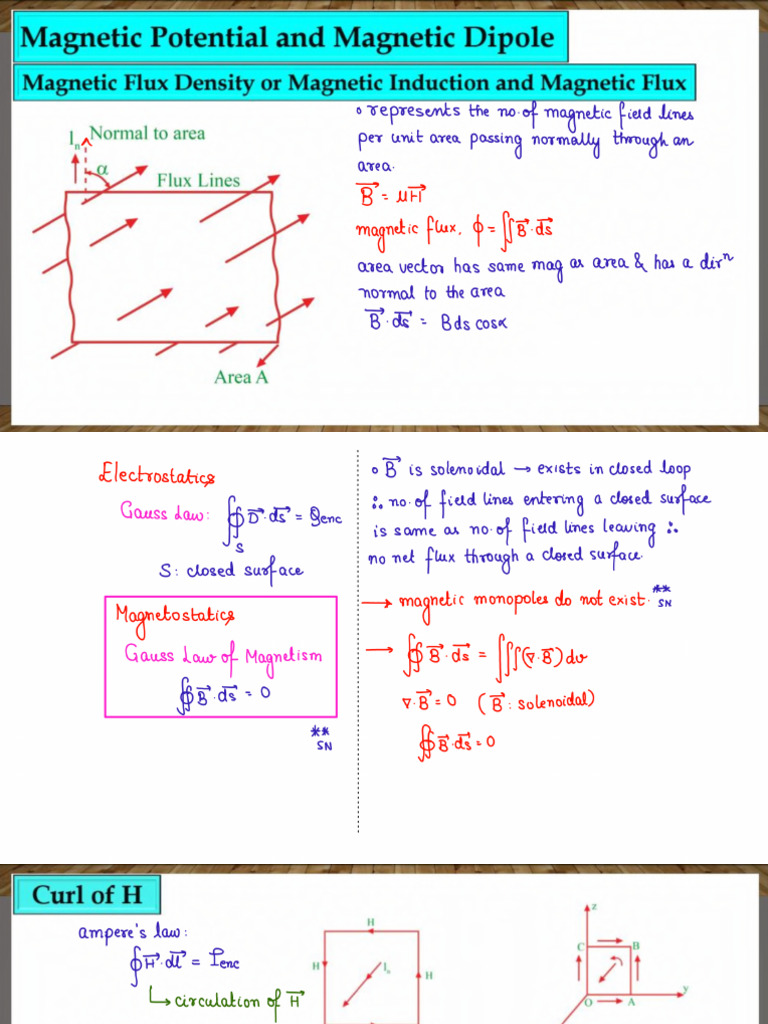 Magnetic Potential and Magnetic Dipole
Magnetic Flux Density or Magnetic Induction and Magnetic Flux
Iₙ
Normal to area
α
Flux Lines
Area A
∘ represents the no. of magnetic field lines
per unit area passing normally through an
area.
B⃗ = μH⃗
magnetic flux, ϕ = ∬ B⃗ · ds⃗
area vector has same mag as area & has a dirⁿ
normal to the area
B⃗ · ds⃗ = B ds cosα
Electrostatics
Gauss Law: ∯ D⃗ · ds⃗ = Qenc
S
S: closed surface
Magnetostatics
Gauss Law of Magnetism
∯ B⃗ · ds⃗ = 0
**
SN
∘ B⃗ is solenoidal → exists in closed loop
∴ no. of field lines entering a closed surface
is same as no. of field lines leaving ∴
no net flux through a closed surface.
→ magnetic monopoles do not exist. ** SN
→ ∯ B⃗ · ds⃗ = ∭ (∇ · B⃗) dv
∇ · B⃗ = 0 (B⃗ : solenoidal)
∯ B⃗ · ds⃗ = 0
Curl of H
ampere's law:
∮ H⃗ · dl⃗ = Ienc
↳ circulation of H⃗
H
H
Iₙ
H
z
C
B
y
O
A